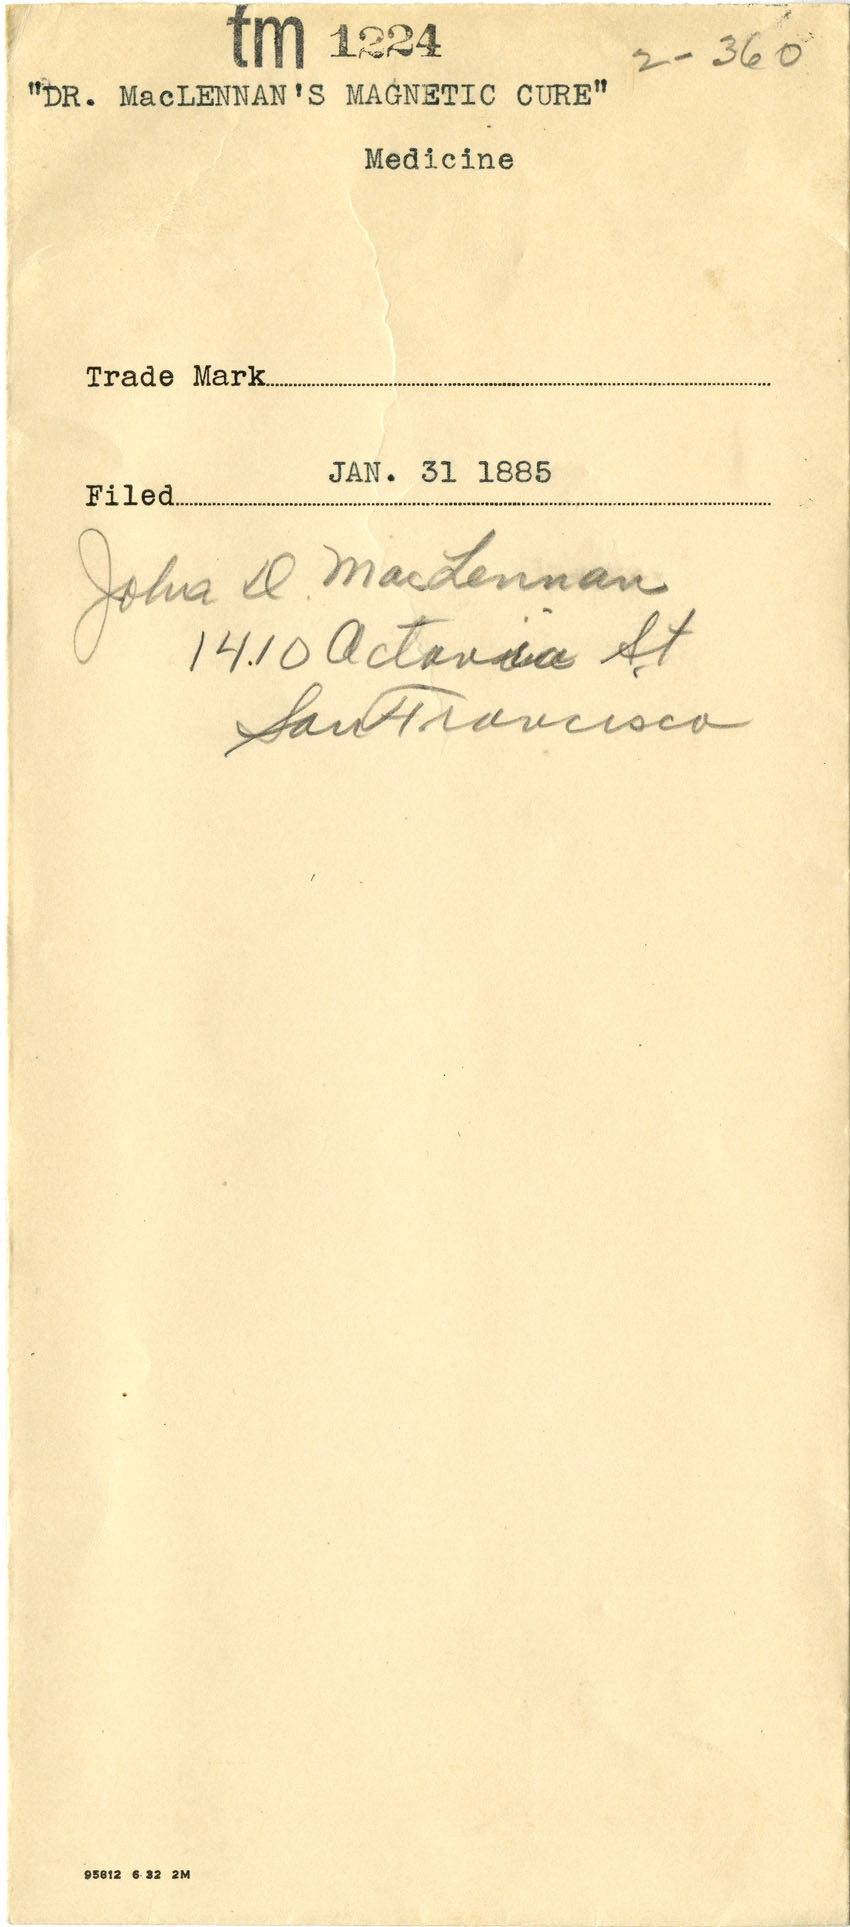 tm 1224
2-360
"DR. MacLENNAN'S MAGNETIC CURE"
Medicine
Trade Mark
JAN. 31 1885
Filed
John D. MacLennan
1410 Octavia St
San Francisco
95812 6 32 2M